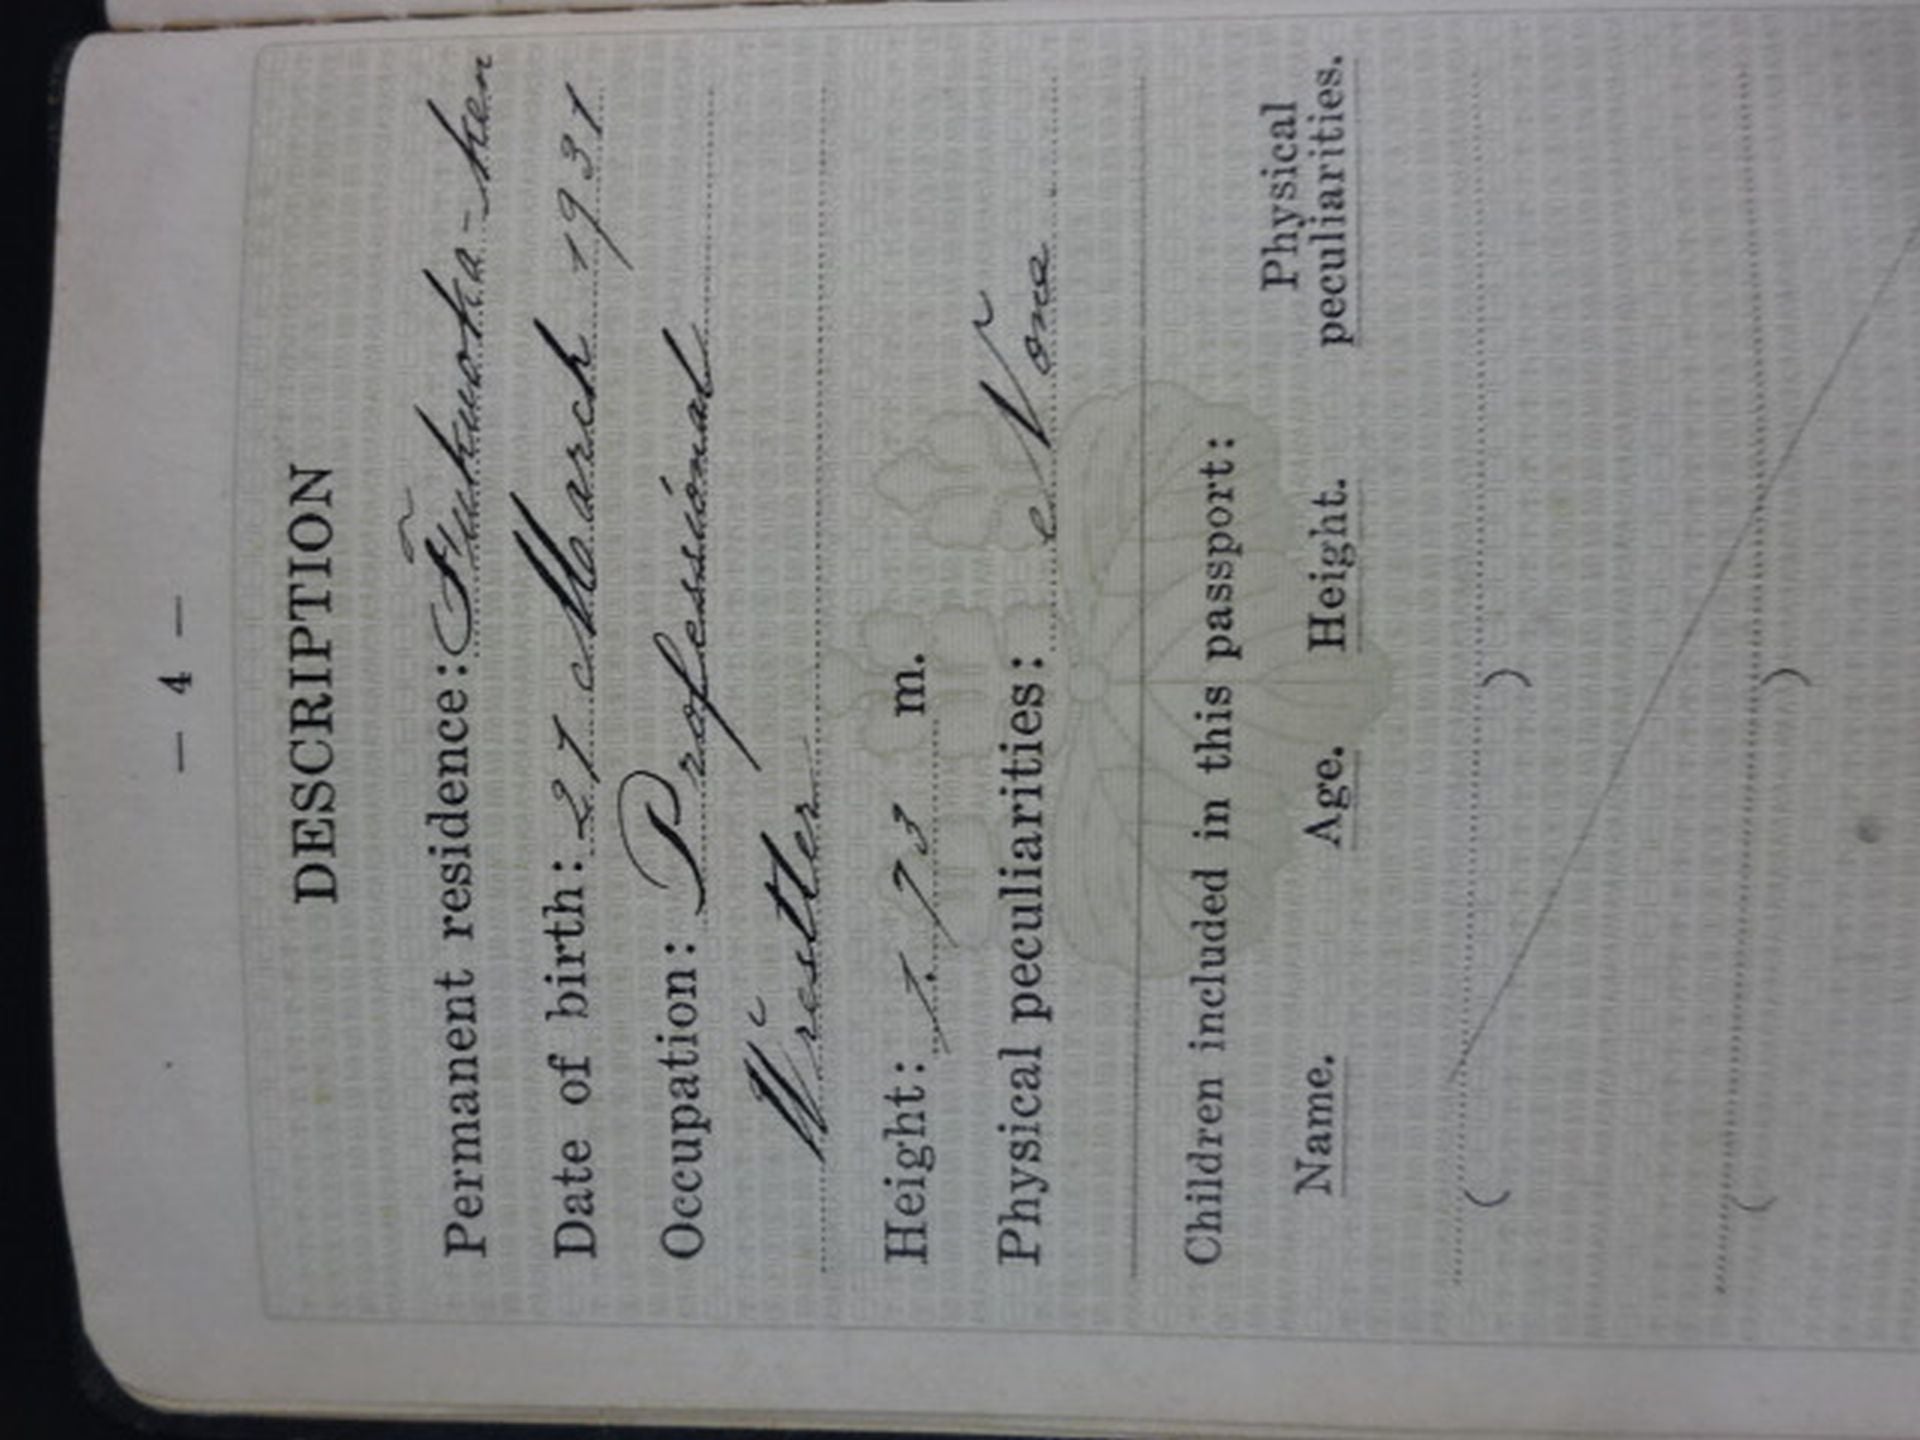 — 4 —
DESCRIPTION
Permanent residence: Fukuoka-ken
Date of birth: 21 March 1931
Occupation: Professional
Wrestler
Height: 1.73 m.
Physical peculiarities: None
Children included in this passport:
Name. Age. Height. Physical peculiarities.
( )
( )